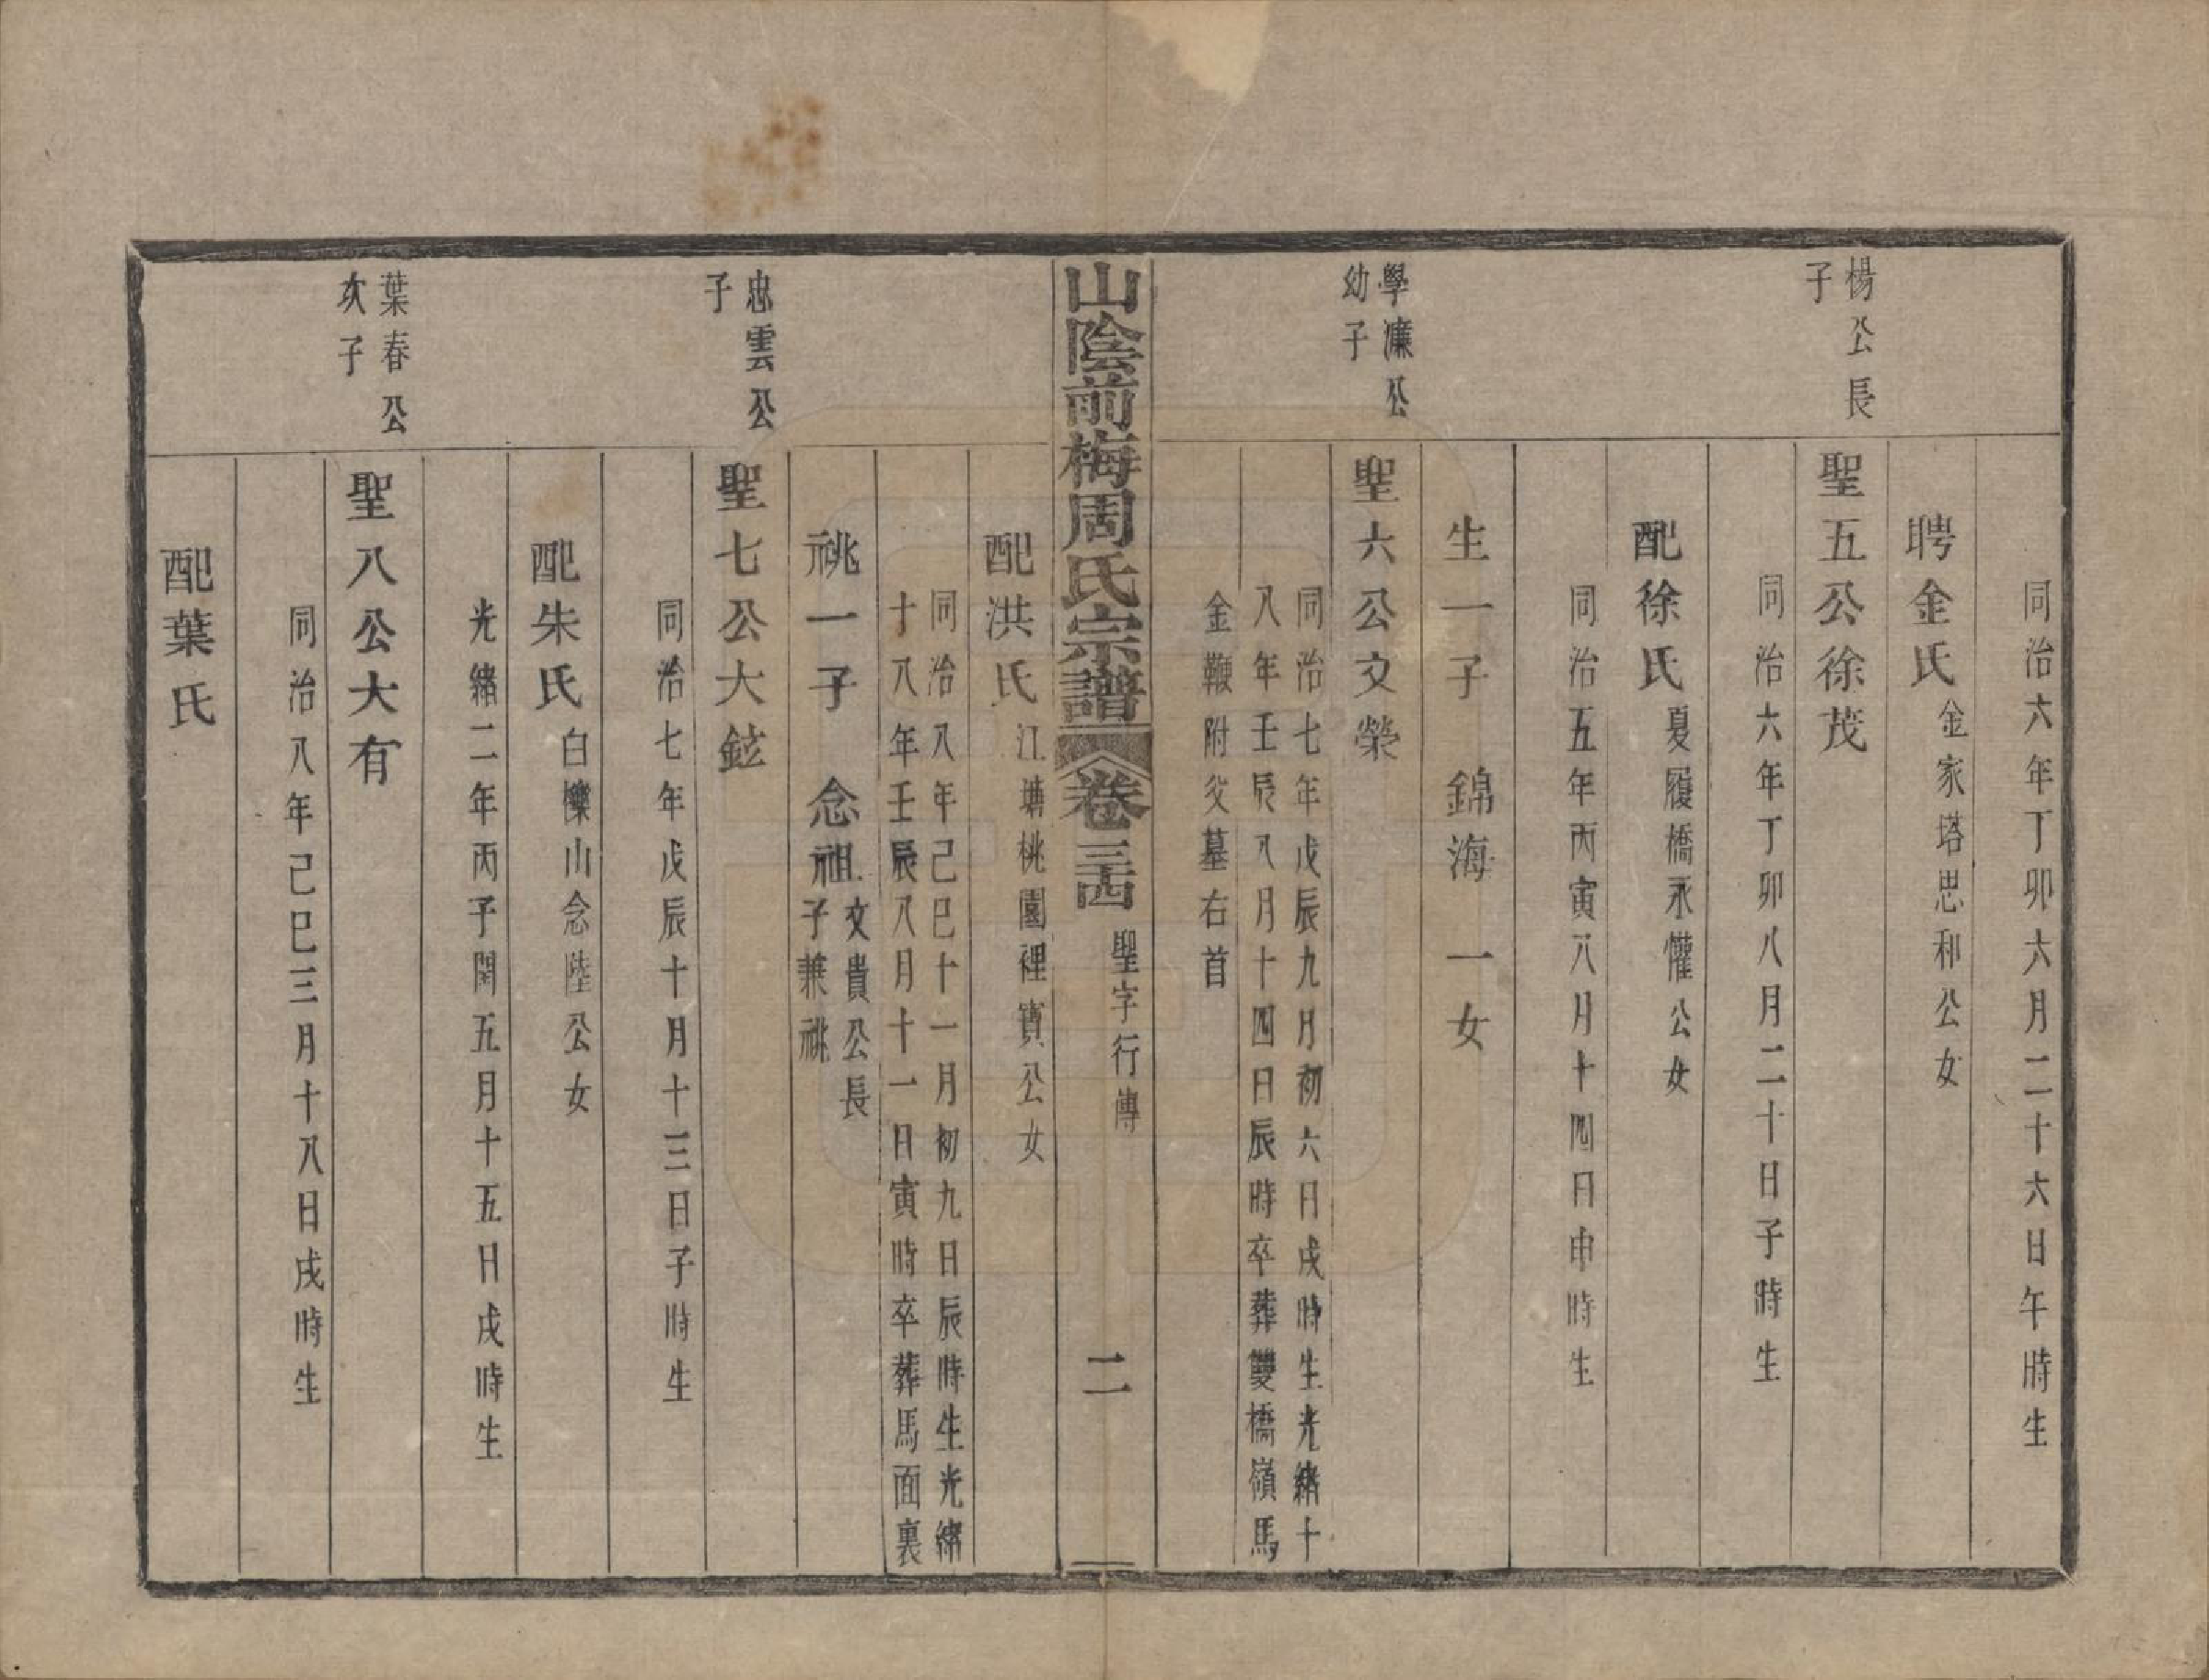 同治六年丁卯六月二十六日午時生
聘金氏金家塔思和公女
楊公長
子
聖五公徐茂
同治六年丁卯八月二十日子時生
配徐氏夏履橋永懽公女
同治五年丙寅八月十四日申時生
生一子 錦海 一女
學濂公
幼子
聖六公文榮
同治七年戊辰九月初六日戌時生光緒十
八年壬辰八月十四日辰時卒葬雙橋嶺馬
金鞭附父墓右首
山陰前梅周氏宗譜 卷三四 聖字行傳 二
配洪氏江塘桃園裡寶公女
同治八年己巳十一月初九日辰時生光緒
十八年壬辰八月十一日寅時卒葬馬面裏
祧一子 念祖文貴公長
子兼祧
忠雲公
子
聖七公大鉉
同治七年戊辰十月十三日子時生
配朱氏白櫟山念陸公女
光緒二年丙子閏五月十五日戌時生
葉春公
次子
聖八公大有
同治八年己巳三月十八日戌時生
配葉氏